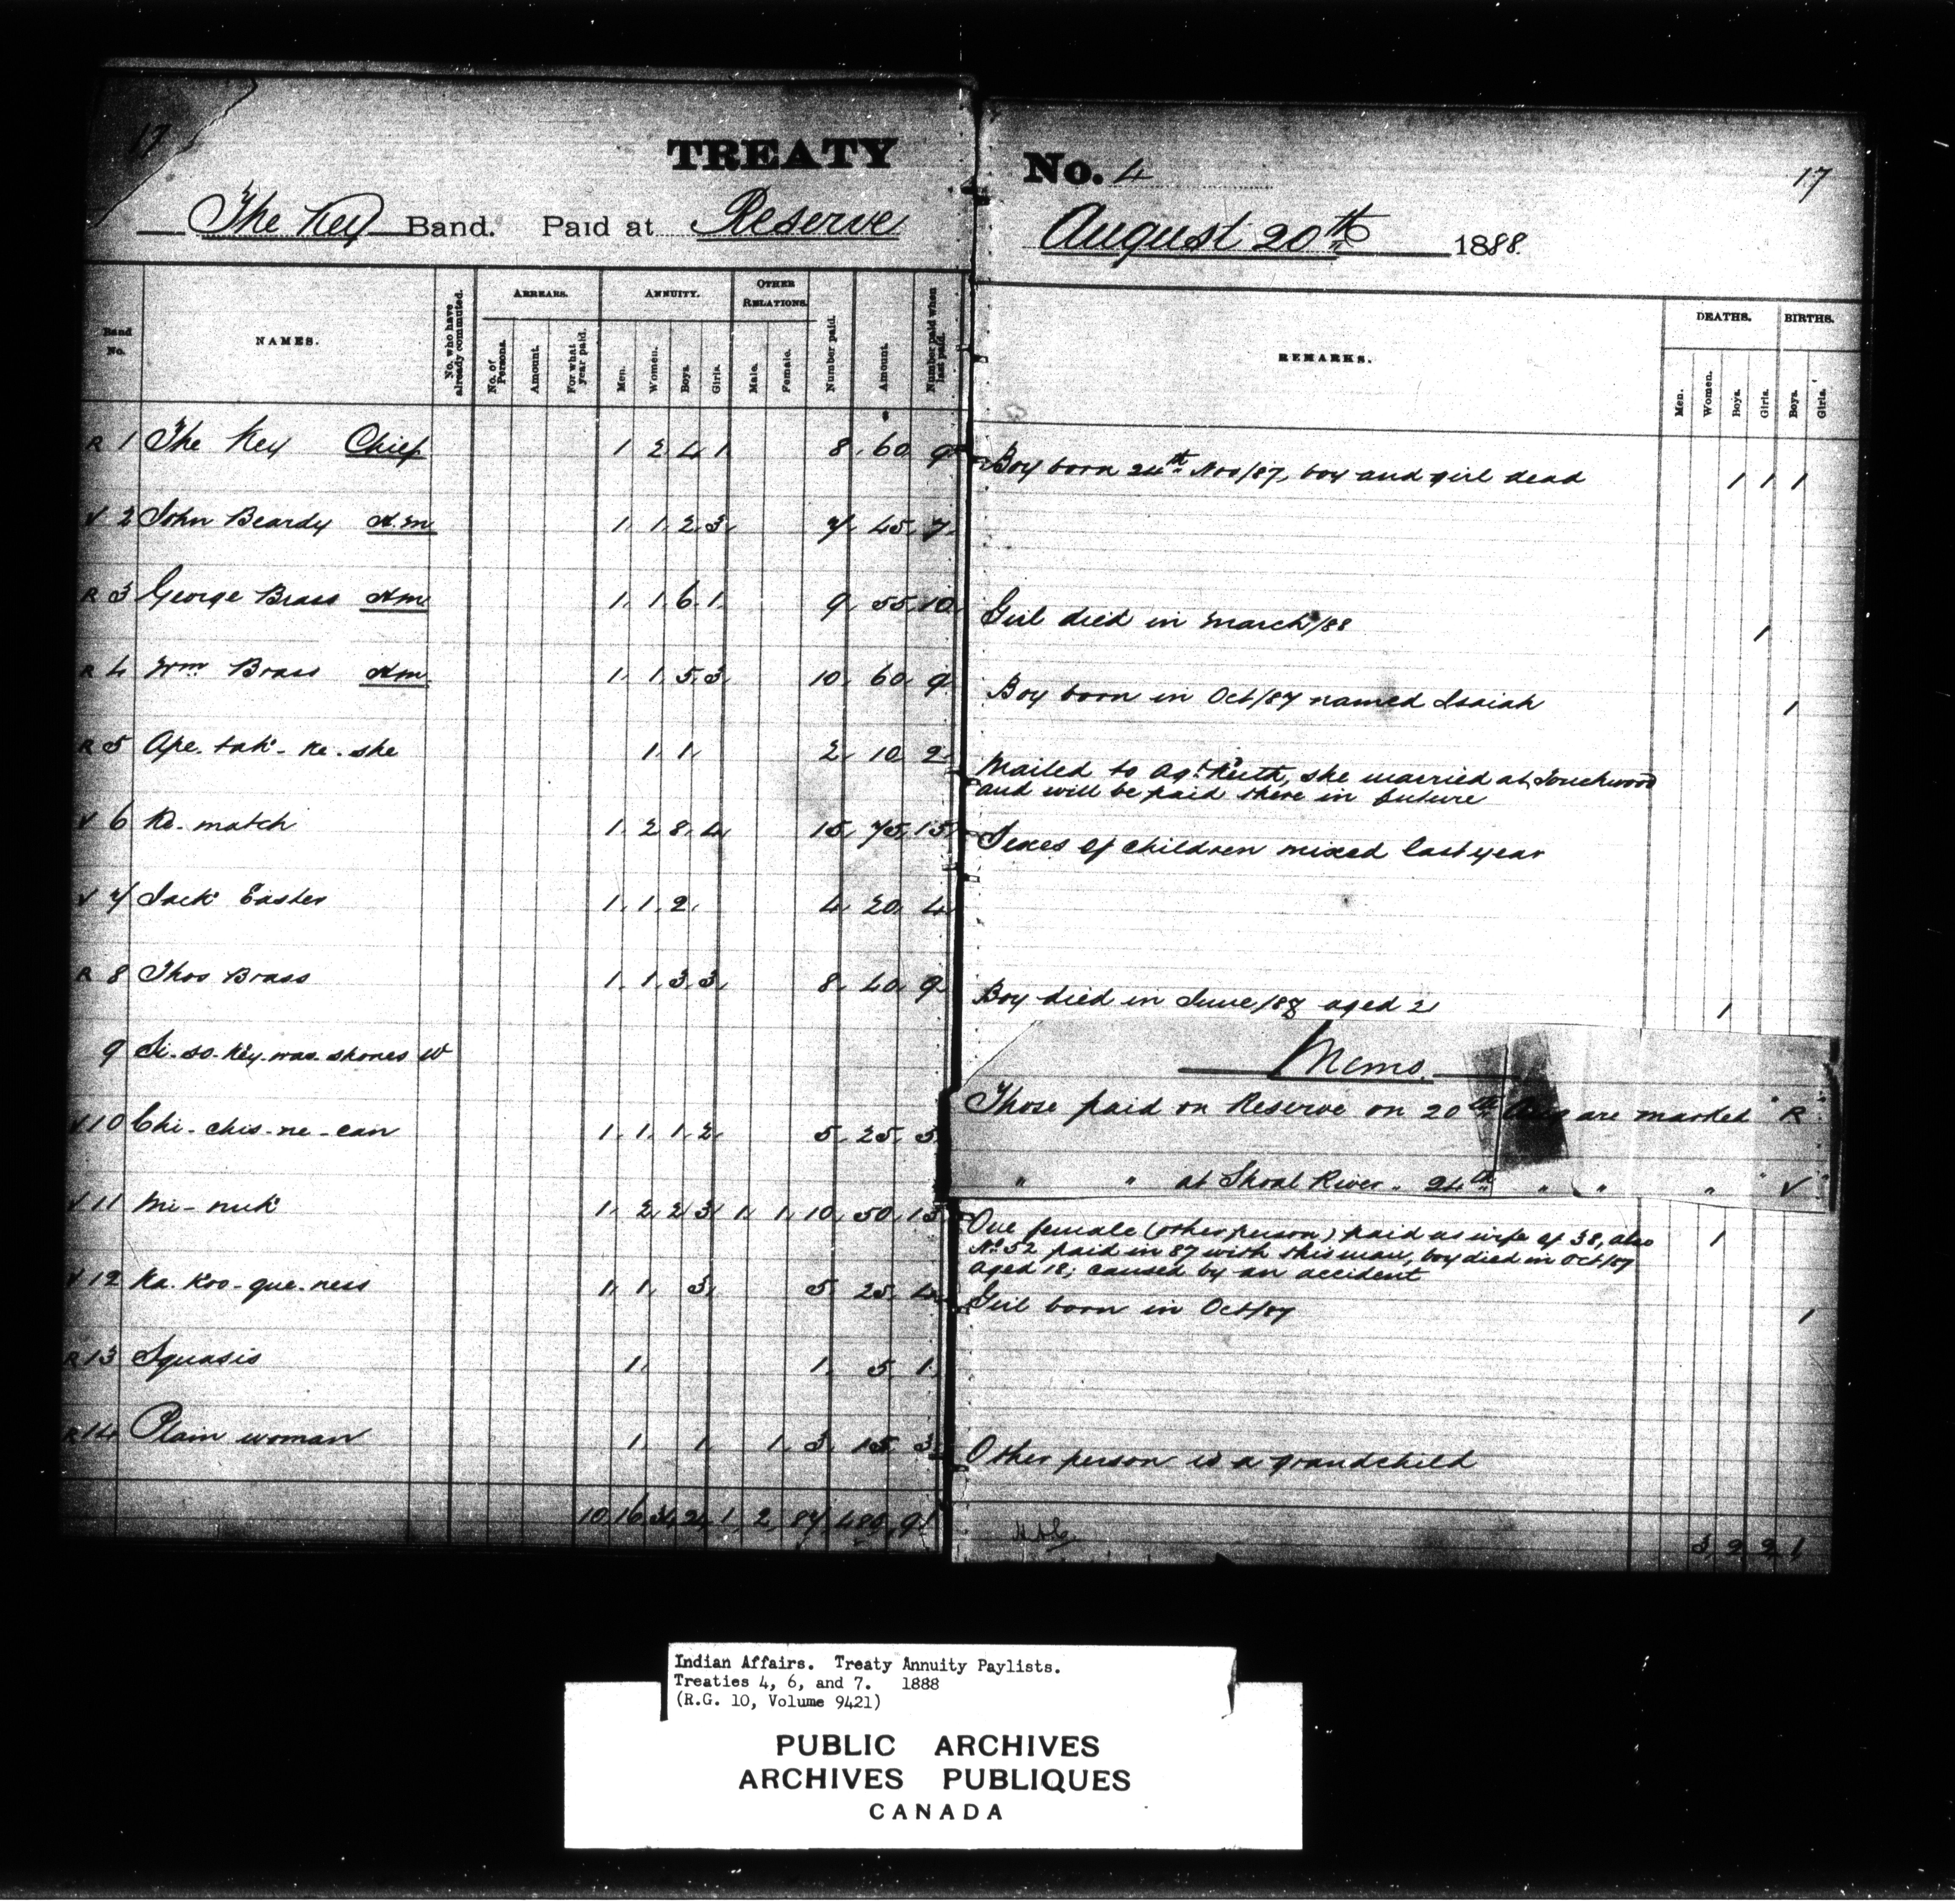 17
TREATY No. 4
17
The Key Band. Paid at Reserve August 20th 1888.
Band No.
NAMES.
No. who have already commuted.
ARREARS.
No. of Persons.
Amount.
For what year paid.
ANNUITY.
Men.
Women.
Boys.
Girls.
OTHER RELATIONS.
Male.
Female.
Number paid.
Amount.
Number paid when last paid.
REMARKS.
DEATHS.
Men.
Women.
Boys.
Girls.
BIRTHS.
Boys.
Girls.
R 1 The Key Chief 1 2 4 1 8 60 9 Boy born 24th Nov/87, boy and girl dead 1 1 1
V 2 John Beardy H.m. 1 1 2 3 7 45 7
R 3 George Brass Hm 1 1 6 1 9 55 10 Girl died in March/88 1
R 4 Wm Brass Hm 1 1 5 3 10 60 9 Boy born in Oct/87 named Isaiah 1
R 5 Ape-tak-ke-she 1 1 2 10 2 Mailed to Agt. Keith, she married at Touchwood
and will be paid there in future
V 6 Ke-match 1 2 8 4 15 75 15 Sexes of children mixed last year
V 7 Jack Easter 1 1 2 4 20 4
R 8 Thos Brass 1 1 3 3 8 40 9 Boy died in June/88 aged 2 1
9 Si-so-key-was-shones W
Memo.
Those paid on Reserve on 20th Aug are marked "R"
" " at Shoal River " 24th " " " "V"
V 10 Chi-chis-ne-can 1 1 1 2 5 25 5
V 11 Mi-nuk 1 2 2 3 1 1 10 50 13 One female (other person) paid as wife of 38, also
No 52 paid in 87 with this man, boy died in Oct/87
aged 18; caused by an accident 1
V 12 Ka-koo-que-ness 1 1 3 5 25 4 Girl born in Oct/87 1
R 13 Squasis 1 1 5 1
R 14 Plain woman 1 1 1 3 15 3 Other person is a grandchild
10 16 34 24 1 2 87 480 91
3 2 2 1
Indian Affairs. Treaty Annuity Paylists.
Treaties 4, 6, and 7. 1888
(R.G. 10, Volume 9421)
PUBLIC ARCHIVES
ARCHIVES PUBLIQUES
CANADA